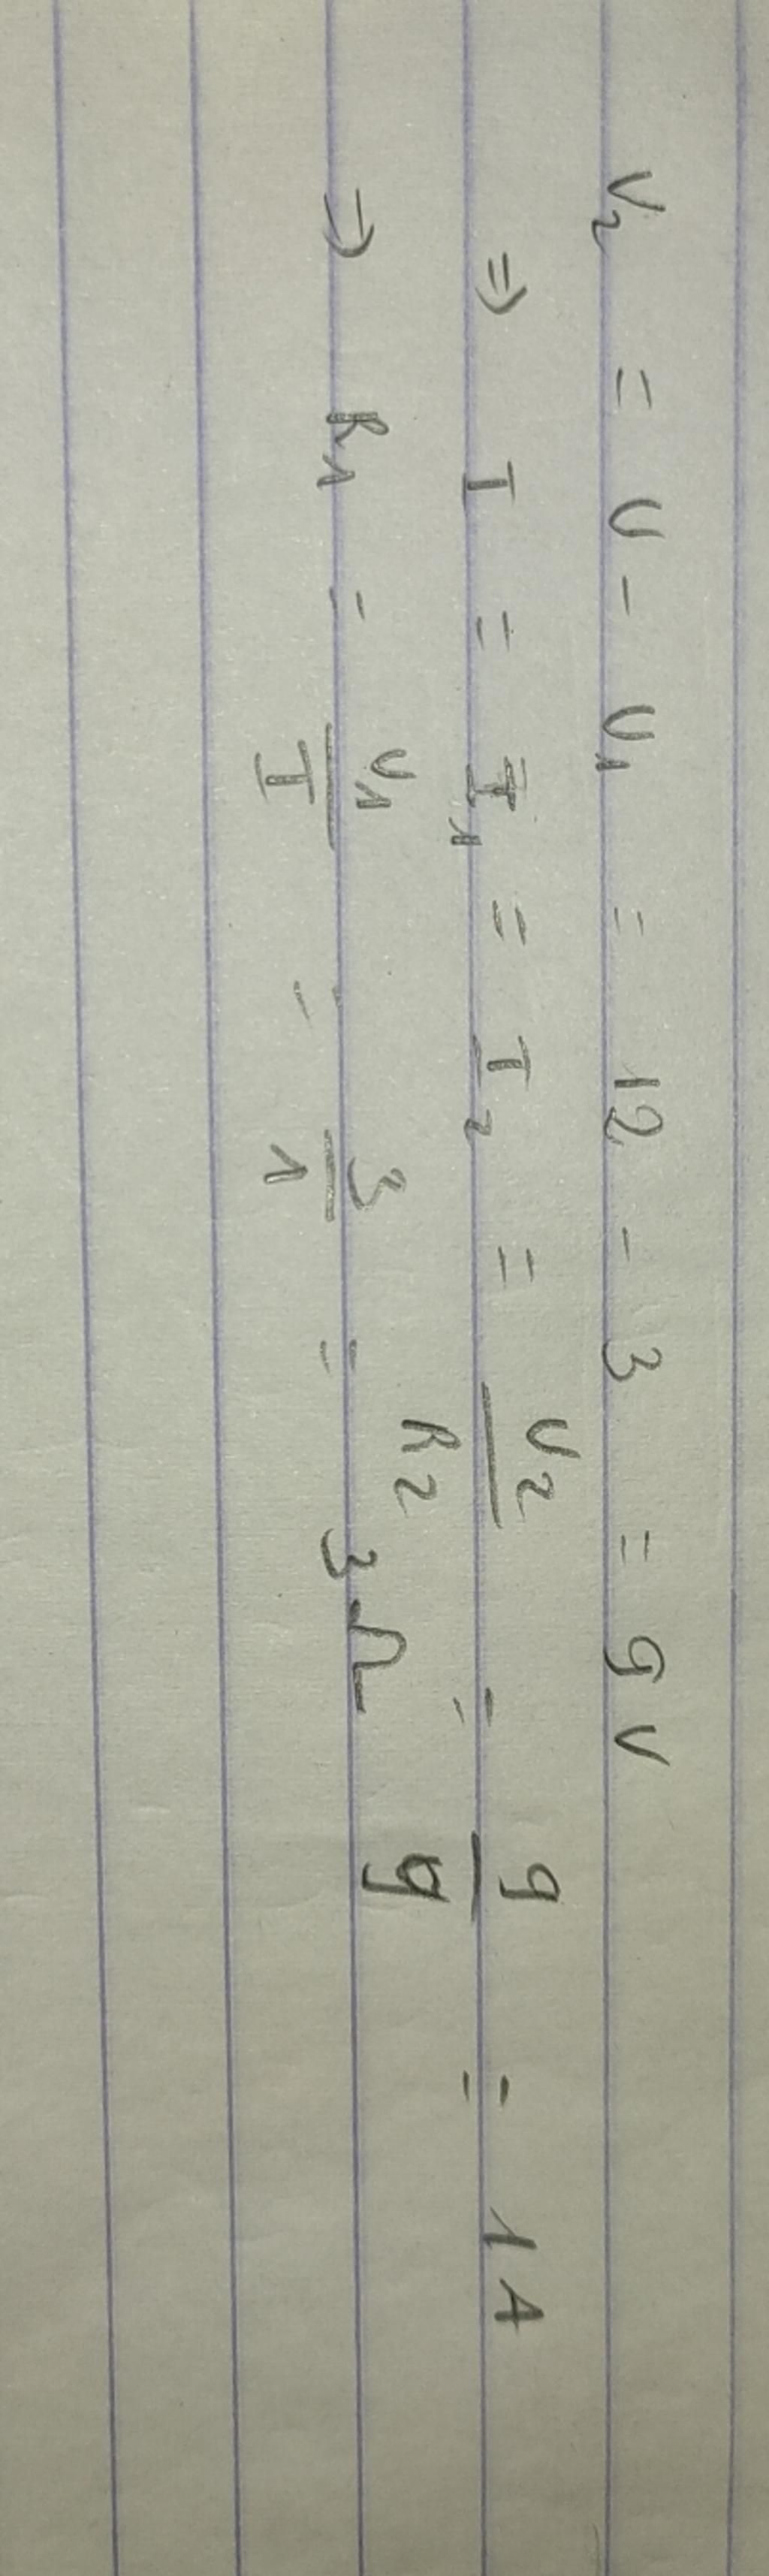 U₂ = U - U₁ = 12 - 3 = 9V
⇒ I = I₁ = I₂ = U₂/R₂ = 9/9 = 1A
⇒ R₁ = U₁/I = 3/1 = 3Ω